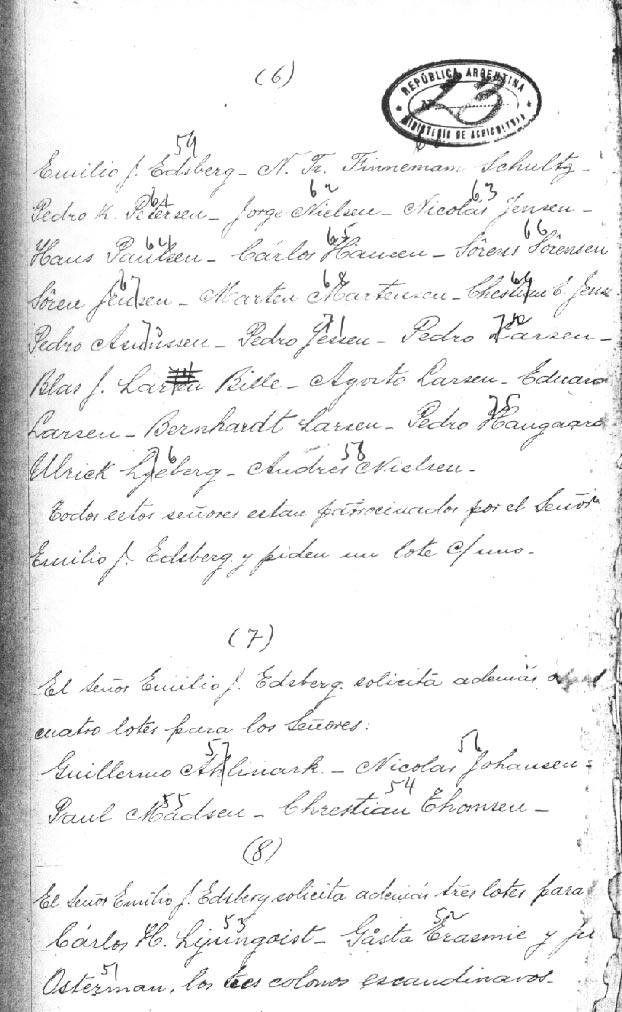 (6)
REPÚBLICA ARGENTINA
23
MINISTERIO DE AGRICULTURA
59
Emilio J. Edsberg - N. Tr. Finnemam Schultz -
61 62 63
Pedro K. Petersen - Jorge Nielsen - Nicolas Jensen -
64 65 66
Hans Paulsen - Cárlos Hansen - Sörens Sörensen
67 68 69
Sören Jensen - Marten Martensen - Chestian C. Jens
70 71 72
Pedro Asmussen - Pedro Jessen - Pedro Larsen -
Blas J. Larsen Bille - Agosto Larsen - Eduard
75
Larsen - Bernhardt Larsen - Pedro Haugaard
76 58
Ulrick Ljeberg - Andrés Nielsen -
Todos estos señores estan patrocinados por el Señor
Emilio J. Edsberg y piden un lote c/uno -
(7)
El Señor Emilio J. Edsberg solicita además
cuatro lotes para los Señores:
57 56
Guillermo Ahlmark - Nicolas Johansen -
55 54
Paul Madsen - Chrestian Thomsen -
(8)
El Señor Emilio J. Edsberg solicita además tres lotes para
53 52
Cárlos H. Ljungqist - Gåsta Erasmie y
51
Osterman, los tres colonos escandinavos -